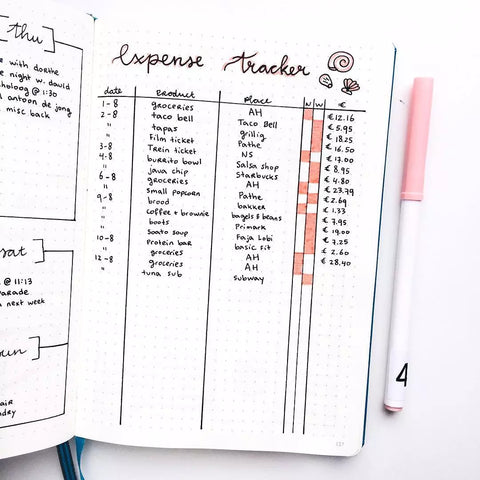 thu
with dorthe
night w. david
@ 1:30
antoon de jong
misc back
sat
@ 11:13
next week
Expense tracker
date
1-8
2-8
"
"
3-8
4-8
"
6-8
"
9-8
"
"
10-8
"
12-8
"
Product
groceries
taco bell
tapas
film ticket
Trein ticket
burrito bowl
java chip
groceries
Small popcorn
brood
coffee + brownie
boots
Soato soup
Protein bar
groceries
groceries
tuna sub
Place
AH
Taco Bell
grillig
Pathe
NS
Salsa shop
Starbucks
AH
Pathe
bakker
bagels & beans
Primark
Faja Lobi
basic fit
AH
AH
subway
N W
€
€12.16
€ 5.95
€ 18.25
€ 16.50
€ 17.00
€ 8.95
€ 4.80
€ 23.79
€ 2.69
€ 1.33
€ 7.95
€ 19.00
€ 7.25
€ 2.60
€ 28.40
4